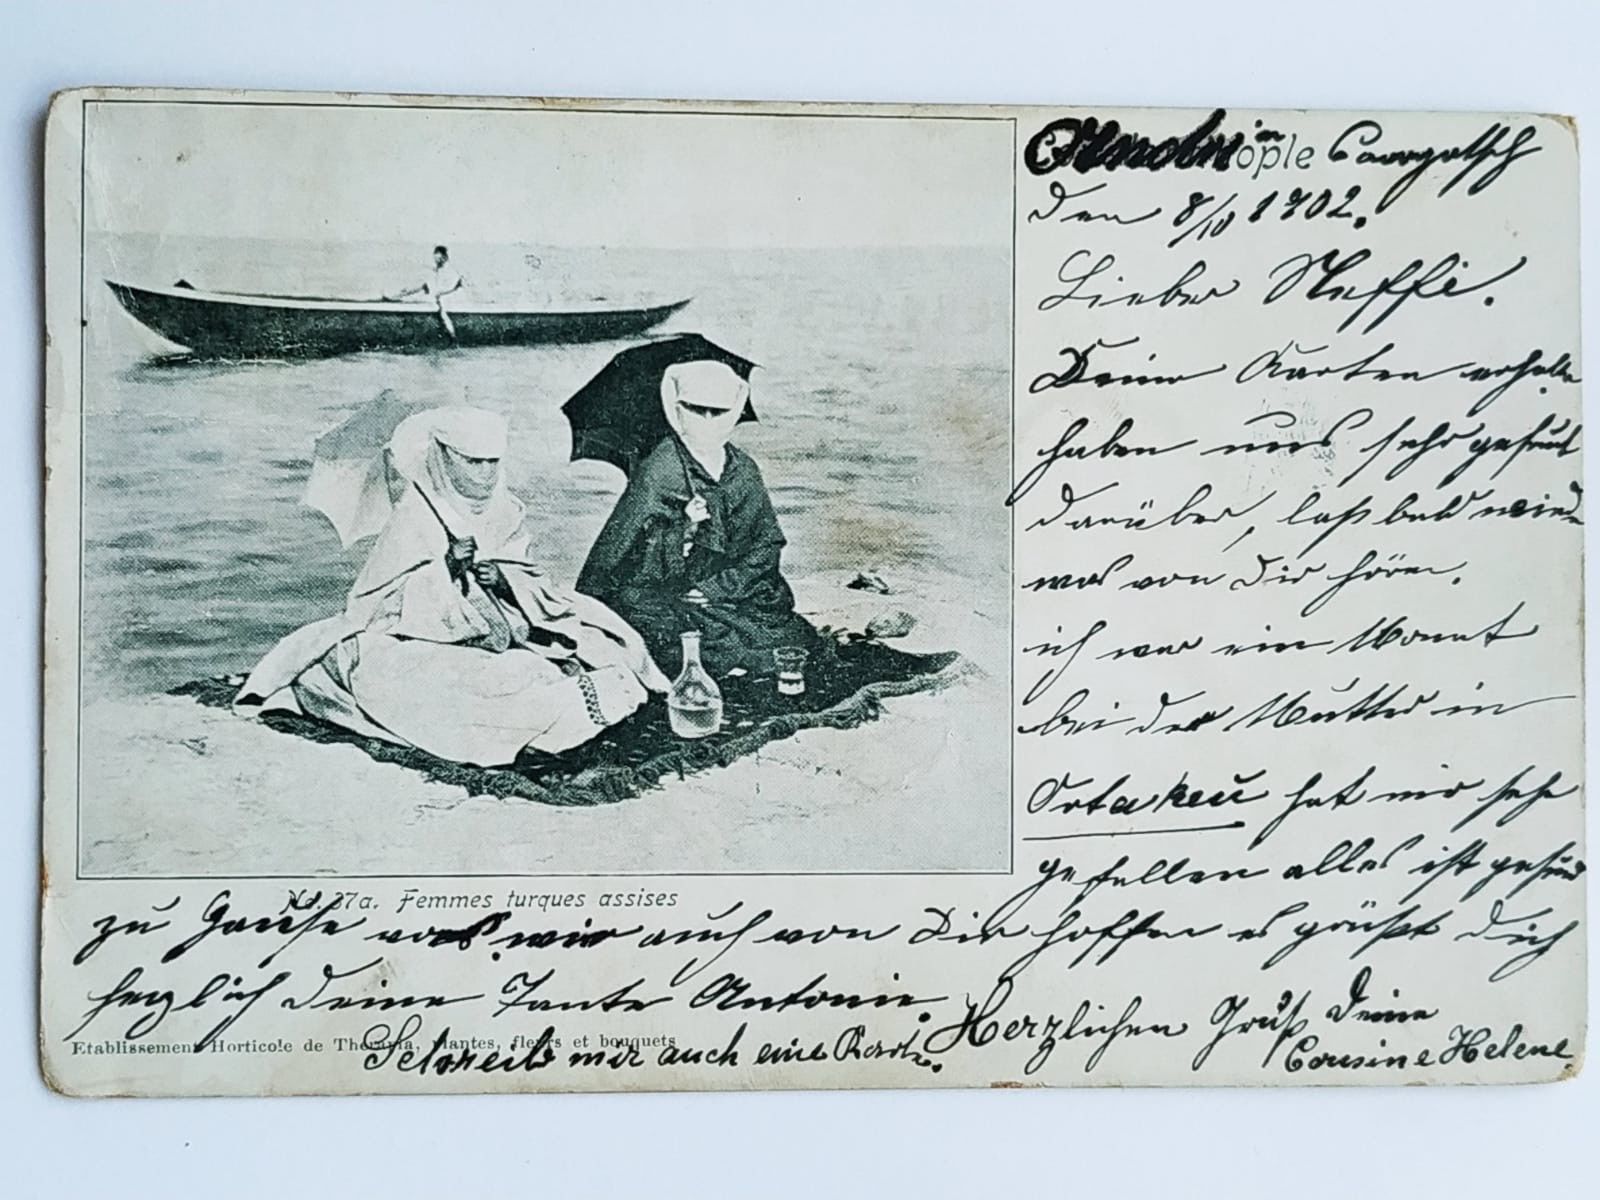 ople
den 8/10 1902.
Lieber Neffe.
Deine Karten erhalten
haben uns sehr gefreut
darüber, laß bald wieder
was von Dir hören.
ich war ein Monat
bei der Mutter in
Ortakeu hat mir sehr
gefallen alles ist gesund
No. 37a. Femmes turques assises
zu Hause was wir auch von Dir hoffen es grüßt Dich
herzlich deine Tante Antonie.
Herzlichen Gruß Deine
Cousine Helene.
Schreib mir auch eine Karte.
Etablissement Horticole de Therapia, plantes, fleurs et bouquets